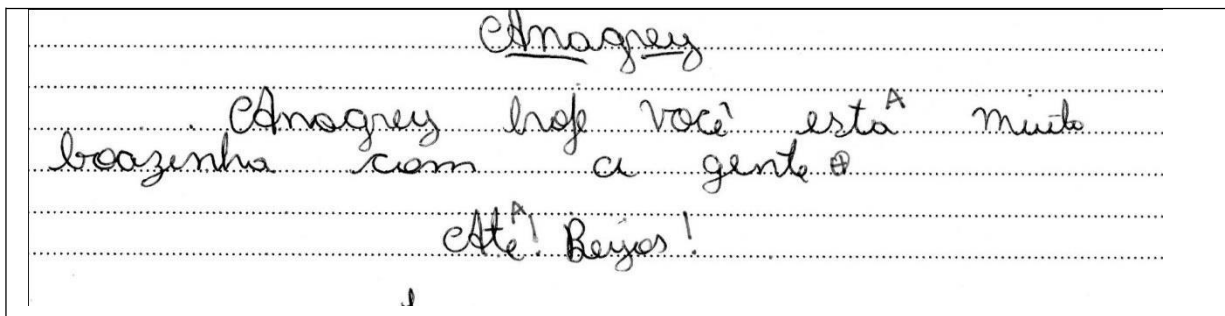 Anagrey
Anagrey hoje você está A muito
boazinha com a gente
Até! A Beijos!